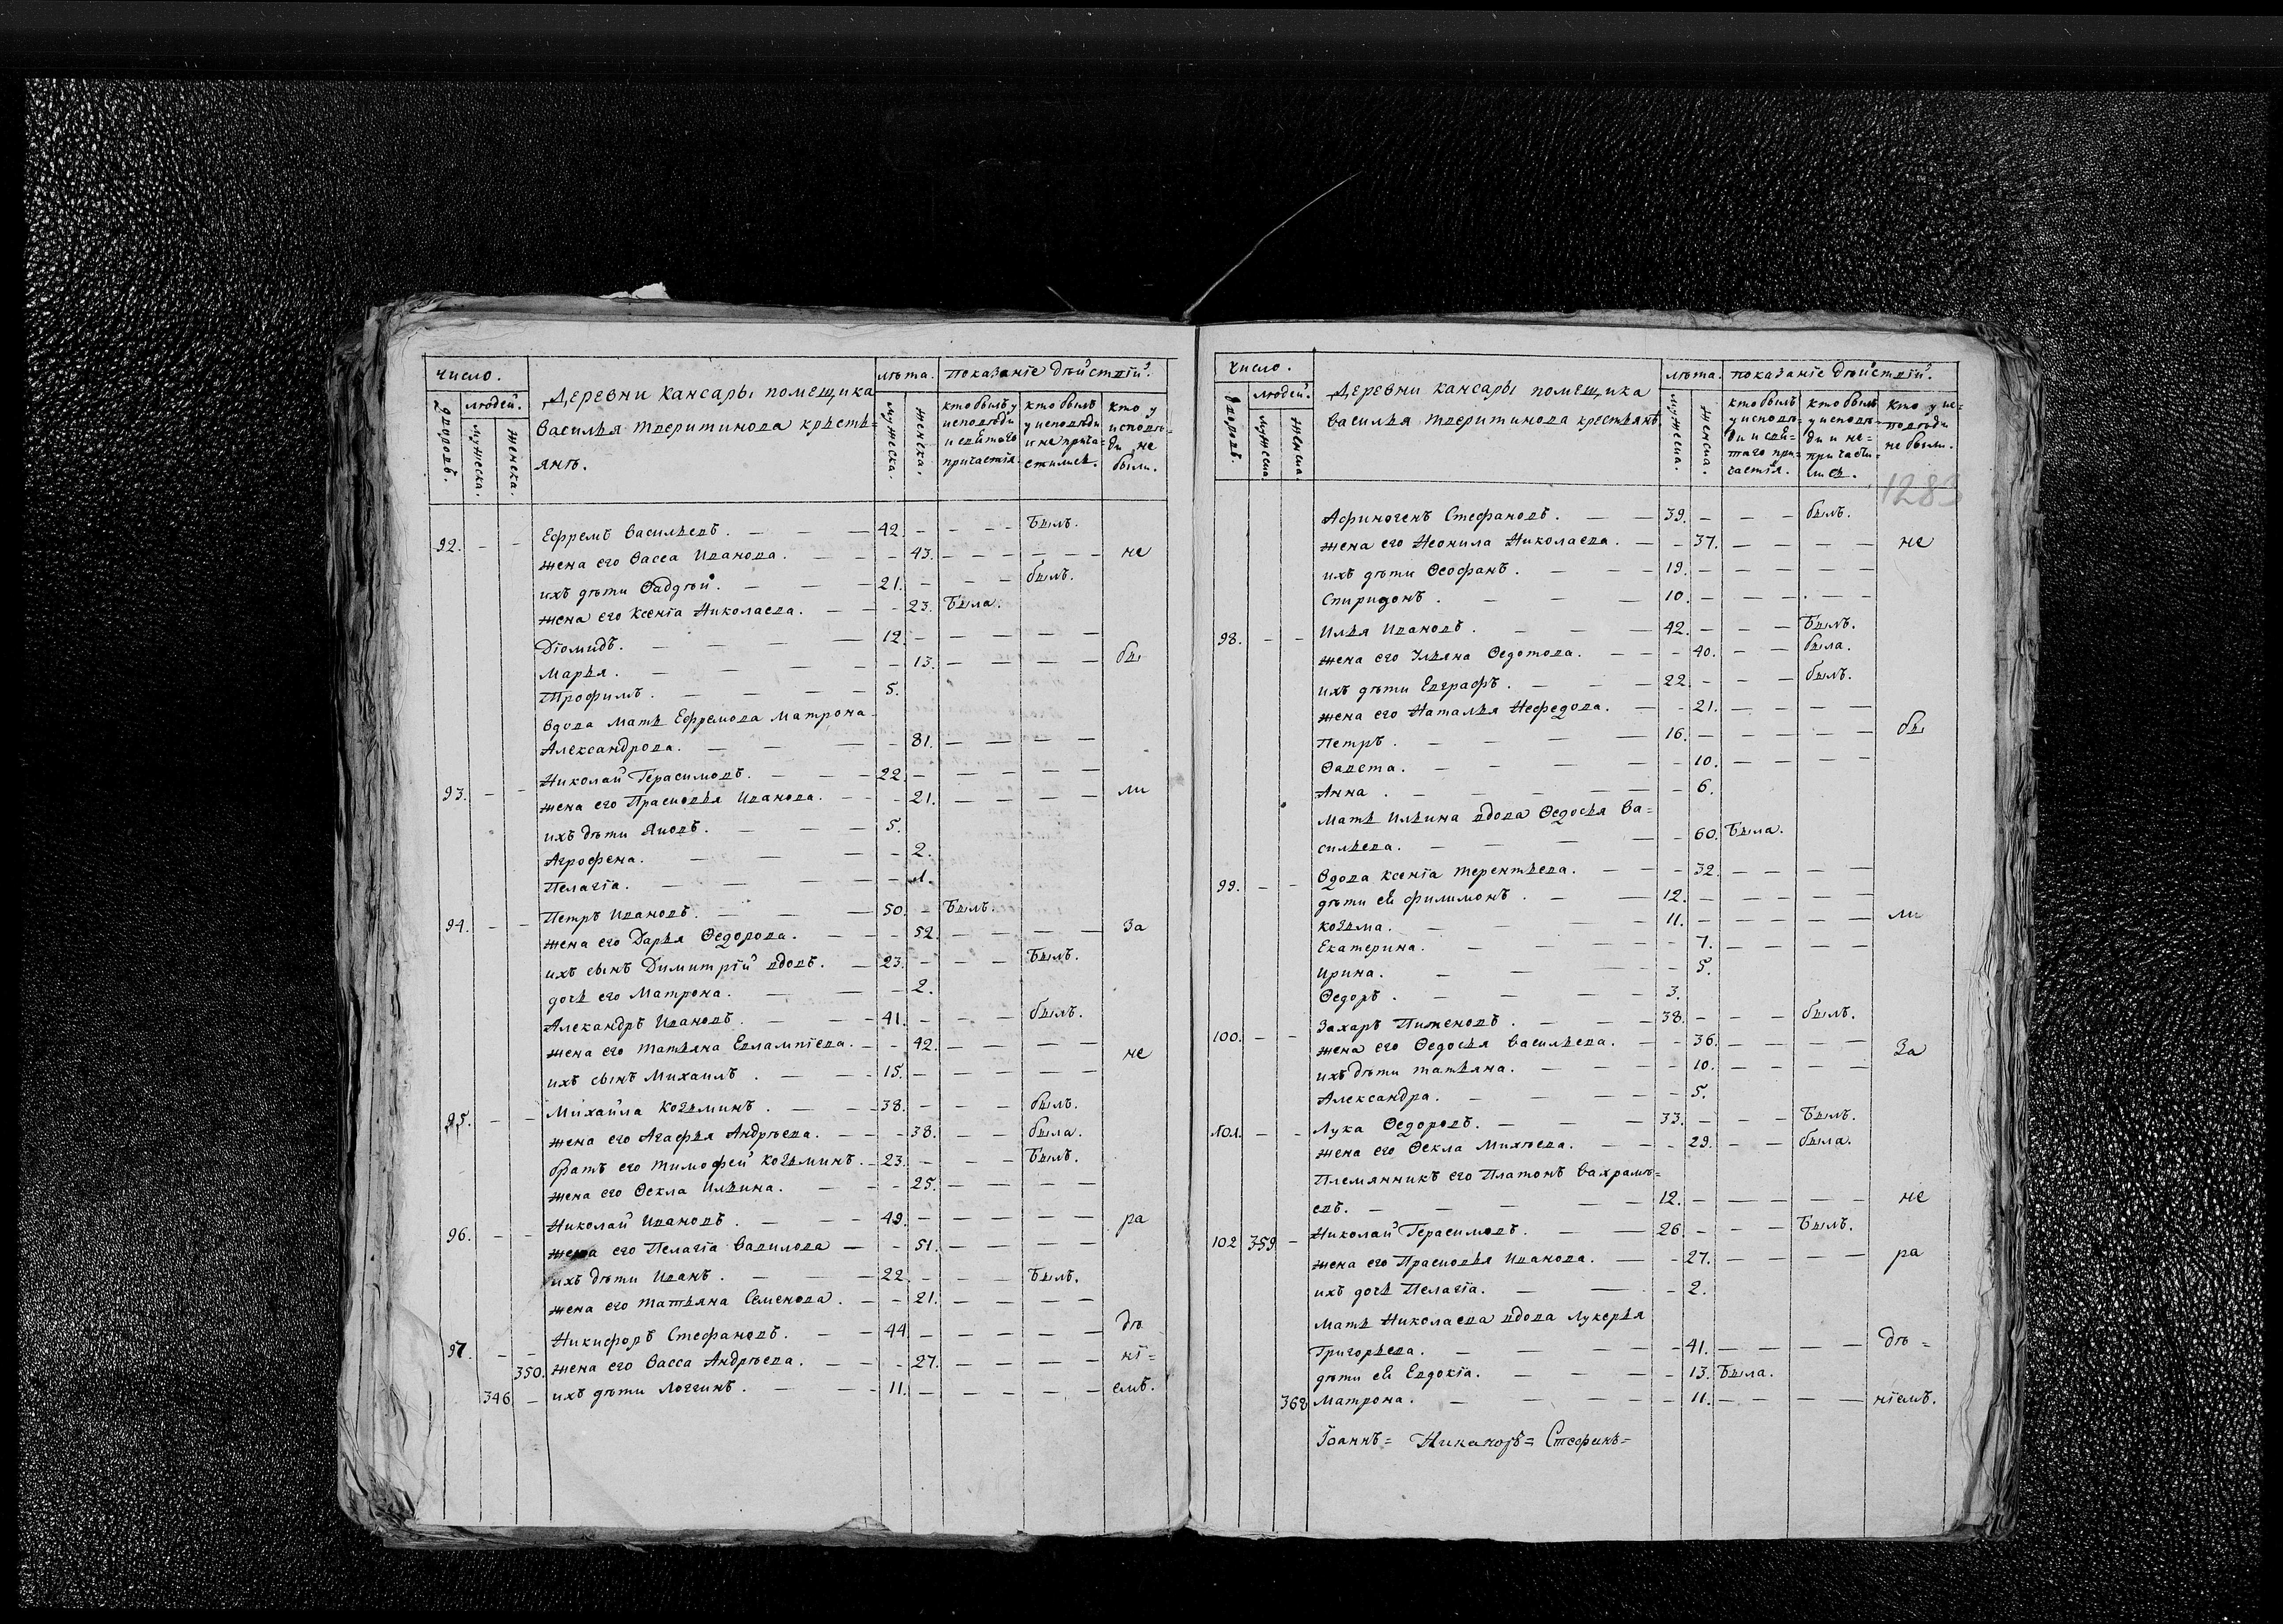 число.
людей.
дворовъ.
мужеска.
женска.
Деревни Кансары помещика
Василья Тверитинова кръсть=
янъ.
лѣта.
мужеска.
женска.
показаніе дѣйствій.
кто былъ у
исповѣди
и святаго
причастія.
кто былъ
у исповѣди
и не прича=
стились.
кто у
исповѣ=
ди не
были.
92. - - Ефремъ Васильевъ. — — — 42. - - - - Былъ.
жена его Васса Иванова. — — - 43. - - - - - - не
ихъ дѣти Фаддѣй. — — — 21. - - - былъ.
жена его Ксенія Николаева. — — - 23. Была.
Діомидъ. — — — — 12. - — — — —
Марья. — — — — - 13. — — — — бы
Трофимъ. — — — — 5.
Вдова мать Ефремова Матрона
Александрова. — — — - 81. — — — —
93. - - Николай Герасимовъ. — — — 22. - — — — —
жена его Прасковья Иванова. — - - 21. — — — — ли
ихъ дѣти Яковъ. — — — 5.
Агрофена. — — — - 2.
Пелагія. — — — - 1.
94. - - Петръ Ивановъ. — — — 50. - Былъ.
жена его Дарья Федорова. — — - 52. — — — — За
ихъ сынъ Димитрій вдовъ. — 23. - - - Былъ.
дочь его Матрона. — — - 2.
Алекандръ Ивановъ. — — - 41. - - - былъ.
жена его Татьяна Евлампіева. — - 42. — — — — не
ихъ сынъ Михаилъ. — — - 15. - — — — —
95. - - Михайла Козьминъ. — — - 38. - — — былъ.
жена его Агафья Андрѣева. — — - 38. — — была.
братъ его Тимофей Козьминъ. - 23. - — — Былъ.
жена его Фекла Ильина. — — - 25. — — — —
96. - - Николай Ивановъ. — — - 49. - — — — — ра
жена его Пелагія Вавилова — - 51. — — —
ихъ дѣти Иванъ. — — — 22. - — — Былъ.
жена его Татьяна Семенова. — - 21. — — — —
97. - - Никифоръ Стефановъ. — — 44. - — — — — дѣ
350. жена его Васса Андрѣева. — — - 27. — — — — ні=
346 - ихъ дѣти Логгинъ. — — - 11. - — — — — емъ.
число.
людей.
дворовъ.
мужеска
женска
Деревни Кансары помещика
Василья Тверитинова крестьянъ
лѣта.
мужеска.
женска.
показаніе дѣйствій.
кто былъ
у исповѣ=
ди и свя=
таго при=
частія.
кто былъ
у исповѣ=
ди и не=
причасти=
лись.
кто у ис=
повѣди
не были.
1283
Афиногенъ Стефановъ. — — 39. - - - былъ.
жена его Неонила Николаева. — - 37. — — — — не
ихъ дѣти Феофанъ. — — - 19. - — — — —
Спиридонъ. — — — 10. - — — — —
98. - - Илья Ивановъ. — — — 42. - — — Былъ.
жена его Ульяна Федотова. — — - 40. — — была.
ихъ дѣти Евграфъ. — — — 22. - — — былъ.
жена его Наталья Нефедова. — - 21. — — — —
Петръ. — — — — 16. - — — — — бы
Фавста. — — — — - 10. — — — —
Анна. — — — — - 6.
Мать Ильина вдова Федосья Ва=
сильева. — — — — - 60. Была.
99. - - Вдова Ксенія Терентьева. — — - 32 — — — —
дѣти ей Филимонъ. — — 12. - — — —
Козьма. — — — - 11. - — — — — ли
Екатерина. — — — - 7. — — — —
Ирина. — — — - 5.
Федоръ. — — — - 3.
100. - - Захаръ Пименовъ. — — - 38. - — — былъ.
жена его Федосья Васильева. — - 36. — — — — За
ихъ дѣти Татьяна. — — — - 10. — — — —
Александра. — — — — - 5.
101. - - Лука Федоровъ. — — — 33. - — — Былъ.
жена его Фекла Михѣева. — — - 29. — — была.
Племянникъ его Платонъ Вахрамѣ=
евъ. — — — — 12. - — — — — не
102 359 - Николай Герасимовъ. — — 26 - — — Былъ.
жена его Прасковья Иванова. — - 27. — — — — ра
ихъ дочь Пелагія. — — - 2.
Мать Николаева вдова Лукерья
Григорьева. — — — — - 41. — — — — дѣ=
дѣти ей Евдокія. — — — - 13. Была.
368 Матрона. — — — — - 11. — — — — ніемъ.
Іоаннъ= Никаноръ= Стефанъ=